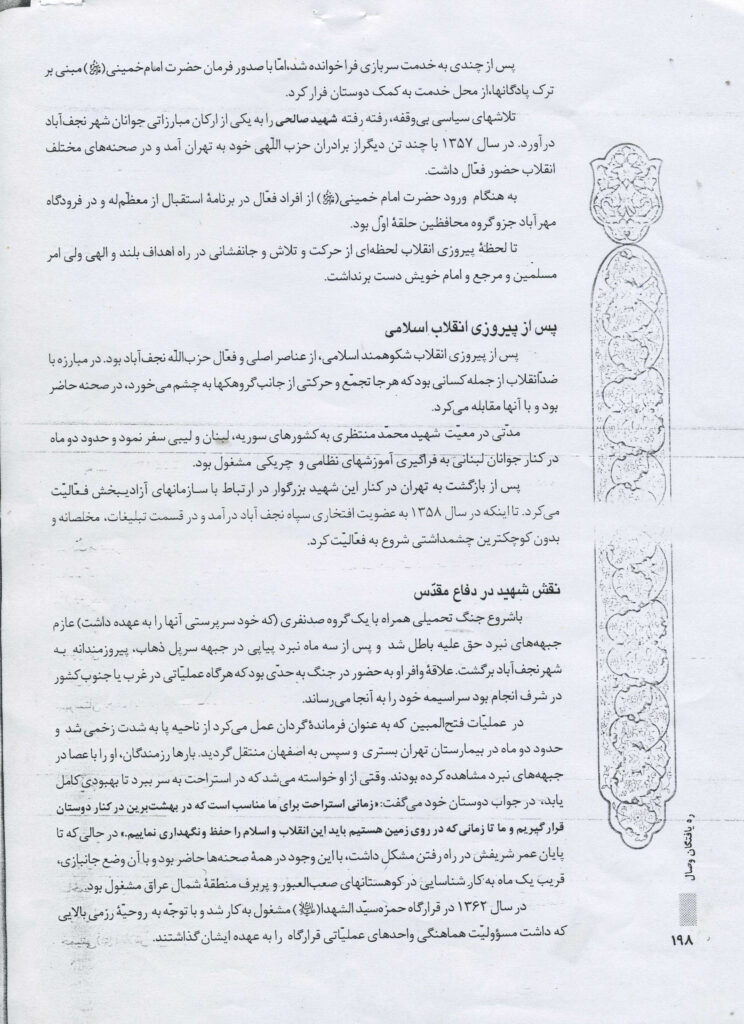 پس از چندی به خدمت سربازی فرا خوانده شد،امّا با صدور فرمان حضرت امام‌خمینی(ره) مبنی بر
ترک پادگانها،از محل خدمت به کمک دوستان فرار کرد.
تلاشهای سیاسی بی‌وقفه، رفته رفته شهید صالحی را به یکی از ارکان مبارزاتی جوانان شهر نجف‌آباد
درآورد. در سال ۱۳۵۷ با چند تن دیگراز برادران حزب اللّهی خود به تهران آمد و در صحنه‌های مختلف
انقلاب حضور فعّال داشت.
به هنگام ورود حضرت امام خمینی(ره) از افراد فعّال در برنامهٔ استقبال از معظّم‌له و در فرودگاه
مهرآباد جزو گروه محافظین حلقهٔ اوّل بود.
تا لحظهٔ پیروزی انقلاب لحظه‌ای از حرکت و تلاش و جانفشانی در راه اهداف بلند و الهی ولی امر
مسلمین و مرجع و امام خویش دست برنداشت.
پس از پیروزی انقلاب اسلامی
پس از پیروزی انقلاب شکوهمند اسلامی، از عناصر اصلی و فعّال حزب‌اللّه نجف‌آباد بود. در مبارزه با
ضدّانقلاب از جمله کسانی بود که هرجا تجمّع و حرکتی از جانب گروهکها به چشم می‌خورد، در صحنه حاضر
بود و با آنها مقابله می‌کرد.
مدّتی در معیّت شهید محمّد منتظری به کشورهای سوریه، لبنان و لیبی سفر نمود و حدود دو ماه
در کنار جوانان لبنانی به فراگیری آموزشهای نظامی و چریکی مشغول بود.
پس از بازگشت به تهران در کنار این شهید بزرگوار در ارتباط با سازمانهای آزادیـبخش فـعّالیت
می‌کرد. تا اینکه در سال ۱۳۵۸ به عضویت افتخاری سپاه نجف آباد درآمد و در قسمت تبلیغات، مخلصانه و
بدون کوچکترین چشمداشتی شروع به فعّالیت کرد.
نقش شهید در دفاع مقدّس
باشروع جنگ تحمیلی همراه با یک گروه صدنفری (که خود سرپرستی آنها را به عهده داشت) عازم
جبهه‌های نبرد حق علیه باطل شد و پس از سه ماه نبرد پیاپی در جبهه سرپل ذهاب، پیروزمندانه به
شهر نجف‌آباد برگشت. علاقهٔ وافر او به حضور در جنگ به حدّی بود که هرگاه عملیّاتی در غرب یا جنوب کشور
در شرف انجام بود سراسیمه خود را به آنجا می‌رساند.
در عملیّات فتح‌المبین که به عنوان فرماندهٔ گردان عمل می‌کرد از ناحیه پا به شدت زخمی شد و
حدود دو ماه در بیمارستان تهران بستری و سپس به اصفهان منتقل گردید. بارها رزمندگان، او را با عصا در
جبهه‌های نبرد مشاهده کرده بودند. وقتی از او خواسته می‌شد که در استراحت به سر ببرد تا بهبودی کامل
یابد، در جواب دوستان خود می‌گفت: «زمانی استراحت برای ما مناسب است که در بهشت‌برین در کنار دوستان
قرار گیریم و ما تا زمانی که در روی زمین هستیم باید این انقلاب و اسلام را حفظ و نگهداری نماییم.» در حالی‌که تا
پایان عمر شریفش در راه رفتن مشکل داشت، با این وجود در همهٔ صحنه‌ها حاضر بود و با آن وضع جانبازی،
قریب یک ماه به کار شناسایی در کوهستانهای صعب‌العبور و پربرف منطقهٔ شمال عراق مشغول بود.
در سال ۱۳۶۲ در قرارگاه حمزه‌سیّد الشهدا(ع) مشغول به کار شد و با توجّه به روحیّهٔ رزمی بالایی
که داشت مسؤولیّت هماهنگی واحدهای عملیّاتی قرارگاه را به عهده ایشان گذاشتند.
ره یافتگان وصال
۱۹۸